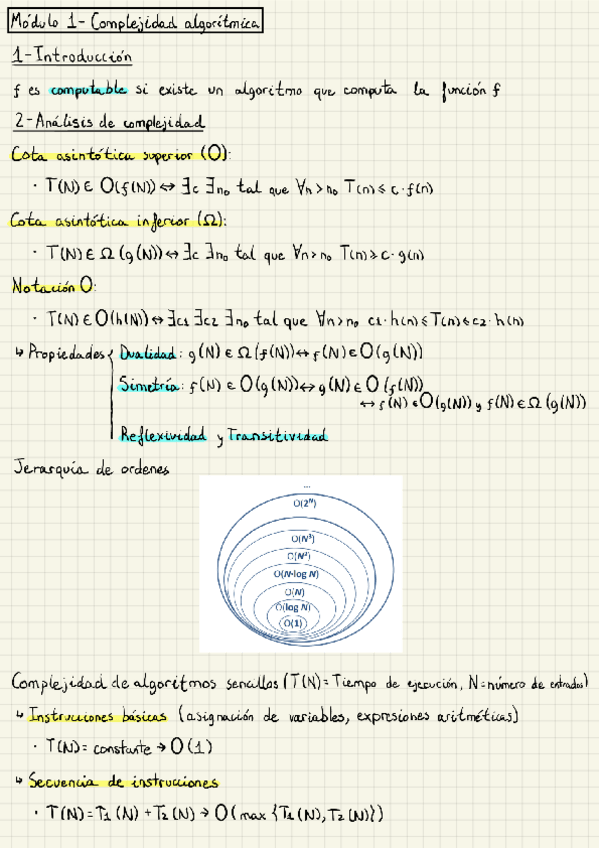 Módulo 1- Complejidad algorítmica
1-Introducción
f es computable si existe un algoritmo que computa la función f
2-Análisis de complejidad
Cota asintótica superior (O):
· T(N) ∈ O(f(N)) ↔ ∃c ∃n₀ tal que ∀n > n₀ T(n) ≤ c · f(n)
Cota asintótica inferior (Ω):
· T(N) ∈ Ω (g(N)) ↔ ∃c ∃n₀ tal que ∀n > n₀ T(n) ≥ c · g(n)
Notación O:
· T(N) ∈ O(h(N)) ↔ ∃c1 ∃c2 ∃n₀ tal que ∀n > n₀ c1 · h(n) ≤ T(n) ≤ c2 · h(n)
↳ Propiedades Dualidad: g(N) ∈ Ω (f(N)) ↔ f(N) ∈ O(g(N))
Simetría: f(N) ∈ O(g(N)) ↔ g(N) ∈ O (f(N))
↔ f(N) ∈ O(g(N)) y f(N) ∈ Ω (g(N))
Reflexividad y Transitividad
Jerarquía de ordenes
...
O(2ᴺ)
O(N³)
O(N²)
O(N·log N)
O(N)
O(log N)
O(1)
Complejidad de algoritmos sencillos (T(N) = Tiempo de ejecución, N = número de entradas)
↳ Instrucciones básicas (asignación de variables, expresiones aritméticas)
· T(N) = constante → O(1)
↳ Secuencia de instrucciones
· T(N) = T₁ (N) + T₂ (N) → O( max {T₁ (N), T₂ (N)})